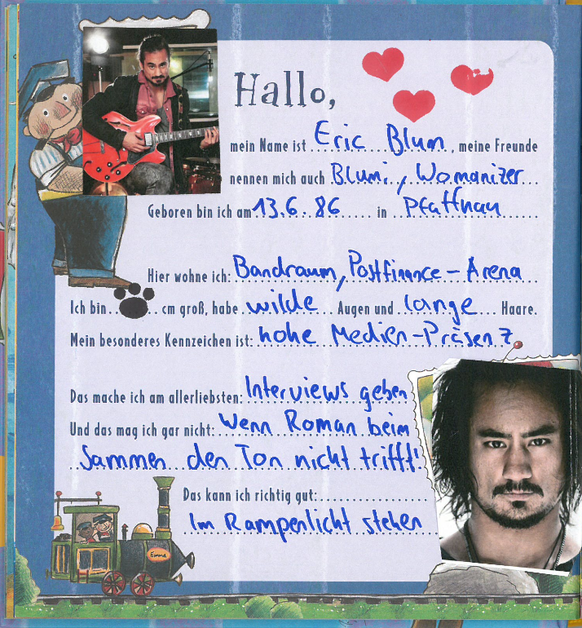 Hallo,
mein Name ist Eric Blum, meine Freunde
nennen mich auch Blumi, Womanizer
Geboren bin ich am 13.6.86 in Pfaffnau
Hier wohne ich: Bandraum, Postfinance-Arena
Ich bin cm groß, habe wilde Augen und lange Haare.
Mein besonderes Kennzeichen ist: hohe Medien-Präsenz
Das mache ich am allerliebsten: Interviews geben
Und das mag ich gar nicht: Wenn Roman beim
Jammen den Ton nicht trifft!
Das kann ich richtig gut:
Im Rampenlicht stehen
Emma